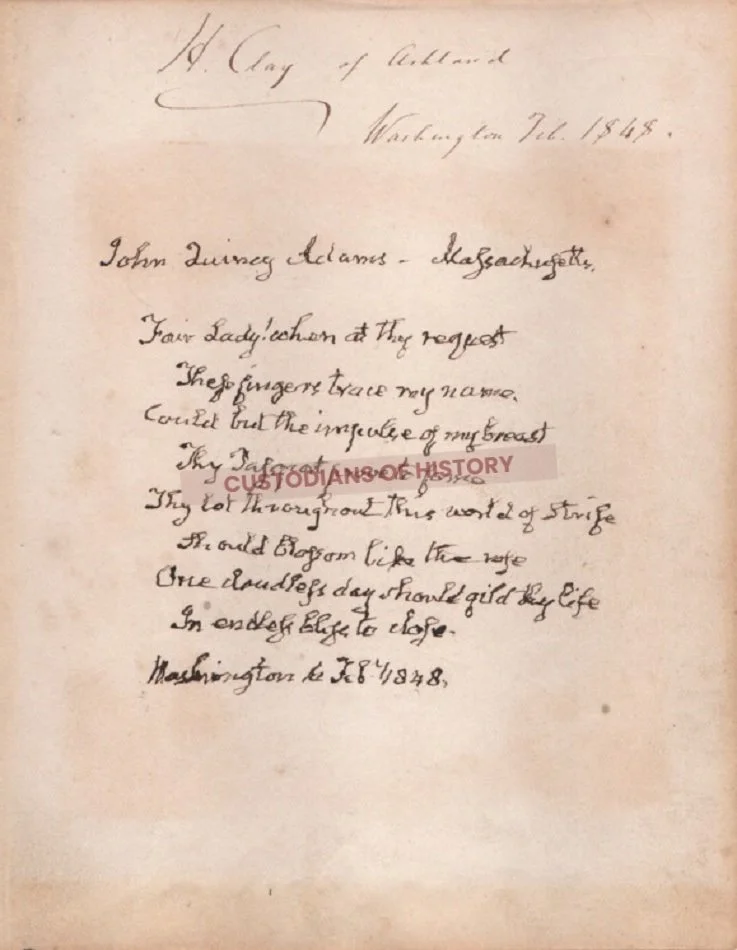 H. Clay of Ashland
Washington Feb. 1848.
John Quincy Adams - Massachusetts.
Fair Lady! when at thy request
These fingers trace my name.
Could but the impulse of my breast
Thy
CUSTODIANS OF HISTORY
Thy lot throughout this world of Strife
Should blossom like the rose
One cloudless day should gild thy life
In endless bliss to close.
Washington Feb 1848.